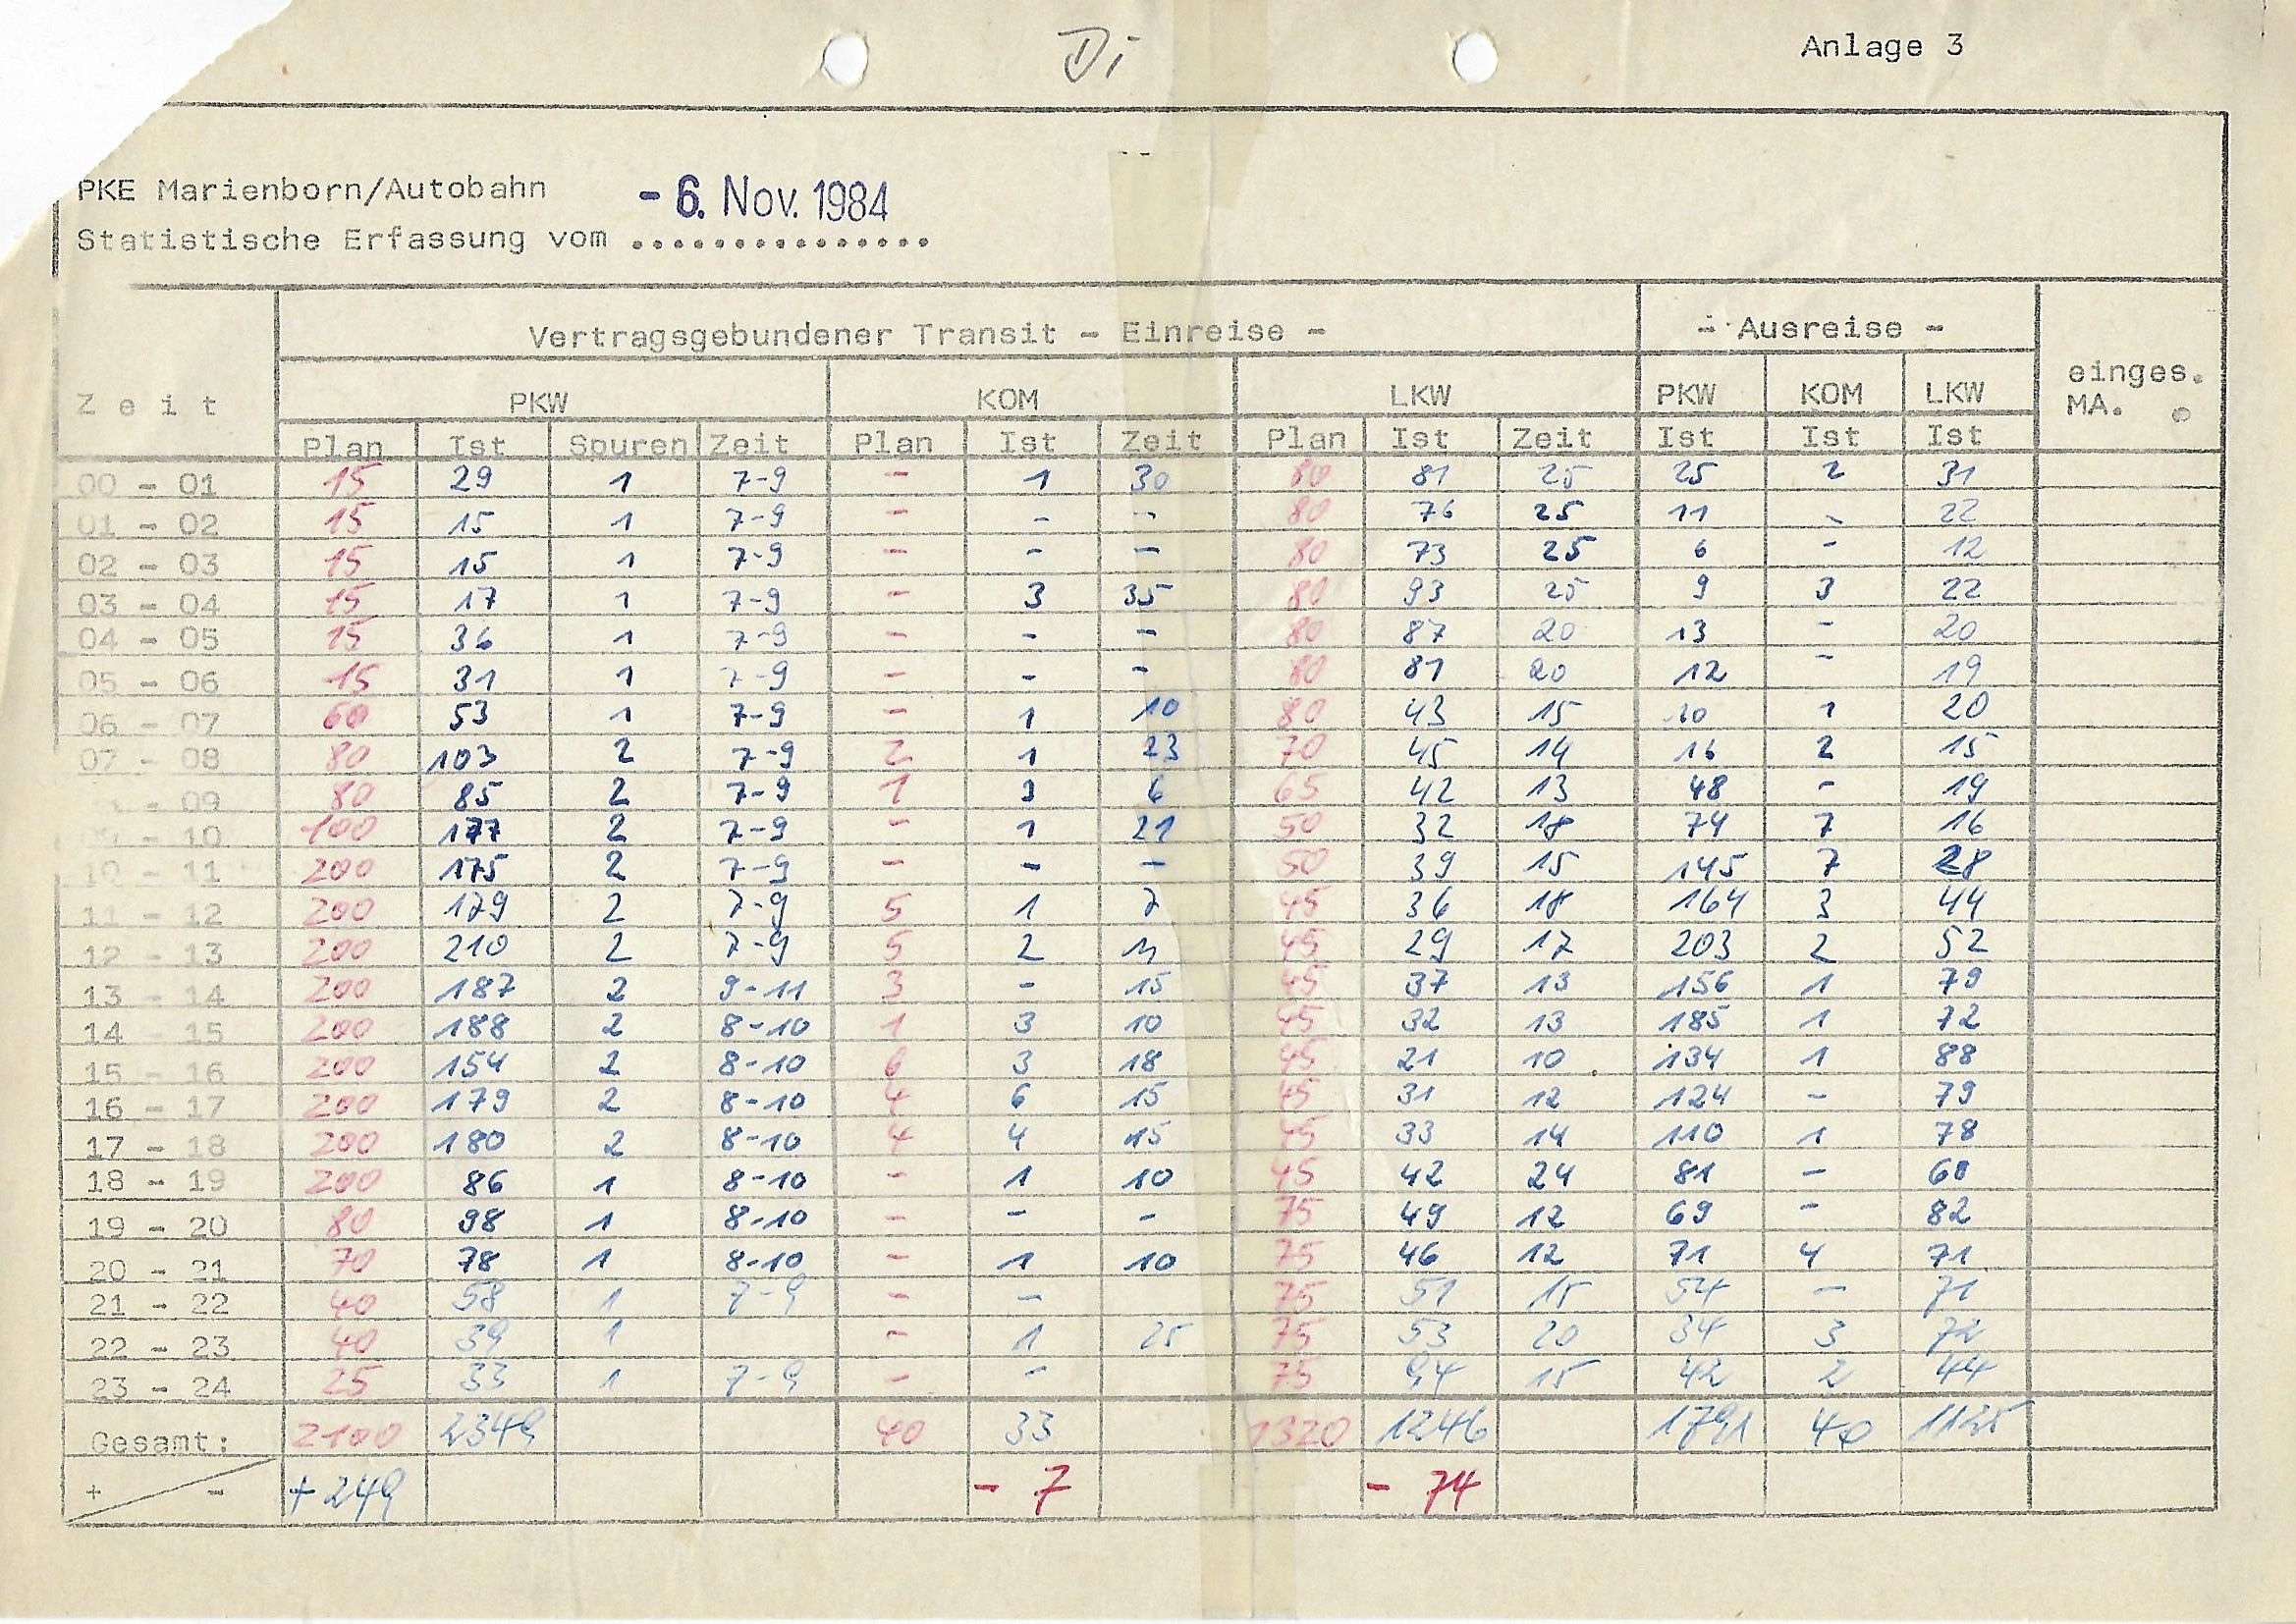 Di
Anlage 3
PKE Marienborn/Autobahn - 6. Nov. 1984
Statistische Erfassung vom ...............
Vertragsgebundener Transit - Einreise - - Ausreise -
Zeit PKW KOM LKW PKW KOM LKW einges. MA.
Plan Ist Spuren Zeit Plan Ist Zeit Plan Ist Zeit Ist Ist Ist
00 - 01 15 29 1 7-9 - 1 30 80 81 25 25 2 31
01 - 02 15 15 1 7-9 - - - 80 76 25 11 - 22
02 - 03 15 15 1 7-9 - - - 80 73 25 6 - 12
03 - 04 15 17 1 7-9 - 3 35 80 93 25 9 3 22
04 - 05 15 36 1 7-9 - - - 80 87 20 13 - 20
05 - 06 15 31 1 7-9 - - - 80 81 20 12 - 19
06 - 07 60 53 1 7-9 - 1 10 80 43 15 10 1 20
07 - 08 80 103 2 7-9 2 1 23 70 45 14 16 2 15
- 09 80 85 2 7-9 1 3 6 65 42 13 48 - 19
- 10 100 177 2 7-9 - 1 21 50 32 18 74 7 16
10 - 11 200 175 2 7-9 - - - 50 39 15 145 7 28
11 - 12 200 179 2 7-9 5 1 7 45 36 18 164 3 44
12 - 13 200 210 2 7-9 5 2 11 45 29 17 203 2 52
13 - 14 200 187 2 9-11 3 - 15 45 37 13 156 1 79
14 - 15 200 188 2 8-10 1 3 10 45 32 13 185 1 72
15 - 16 200 154 2 8-10 6 3 18 45 21 10 134 1 88
16 - 17 200 179 2 8-10 4 6 15 45 31 12 124 - 79
17 - 18 200 180 2 8-10 4 4 15 45 33 14 110 1 78
18 - 19 200 86 1 8-10 - 1 10 45 42 24 81 - 60
19 - 20 80 98 1 8-10 - - - 75 49 12 69 - 82
20 - 21 70 78 1 8-10 - 1 10 75 46 12 71 4 71
21 - 22 40 58 1 7-9 - - 75 51 15 54 - 71
22 - 23 40 39 1 - 1 25 75 53 20 34 3 72
23 - 24 25 33 1 7-9 - - 75 94 15 42 2 44
Gesamt: 2100 2349 40 33 1320 1246 1791 40 1125
+ - +249 - 7 - 74